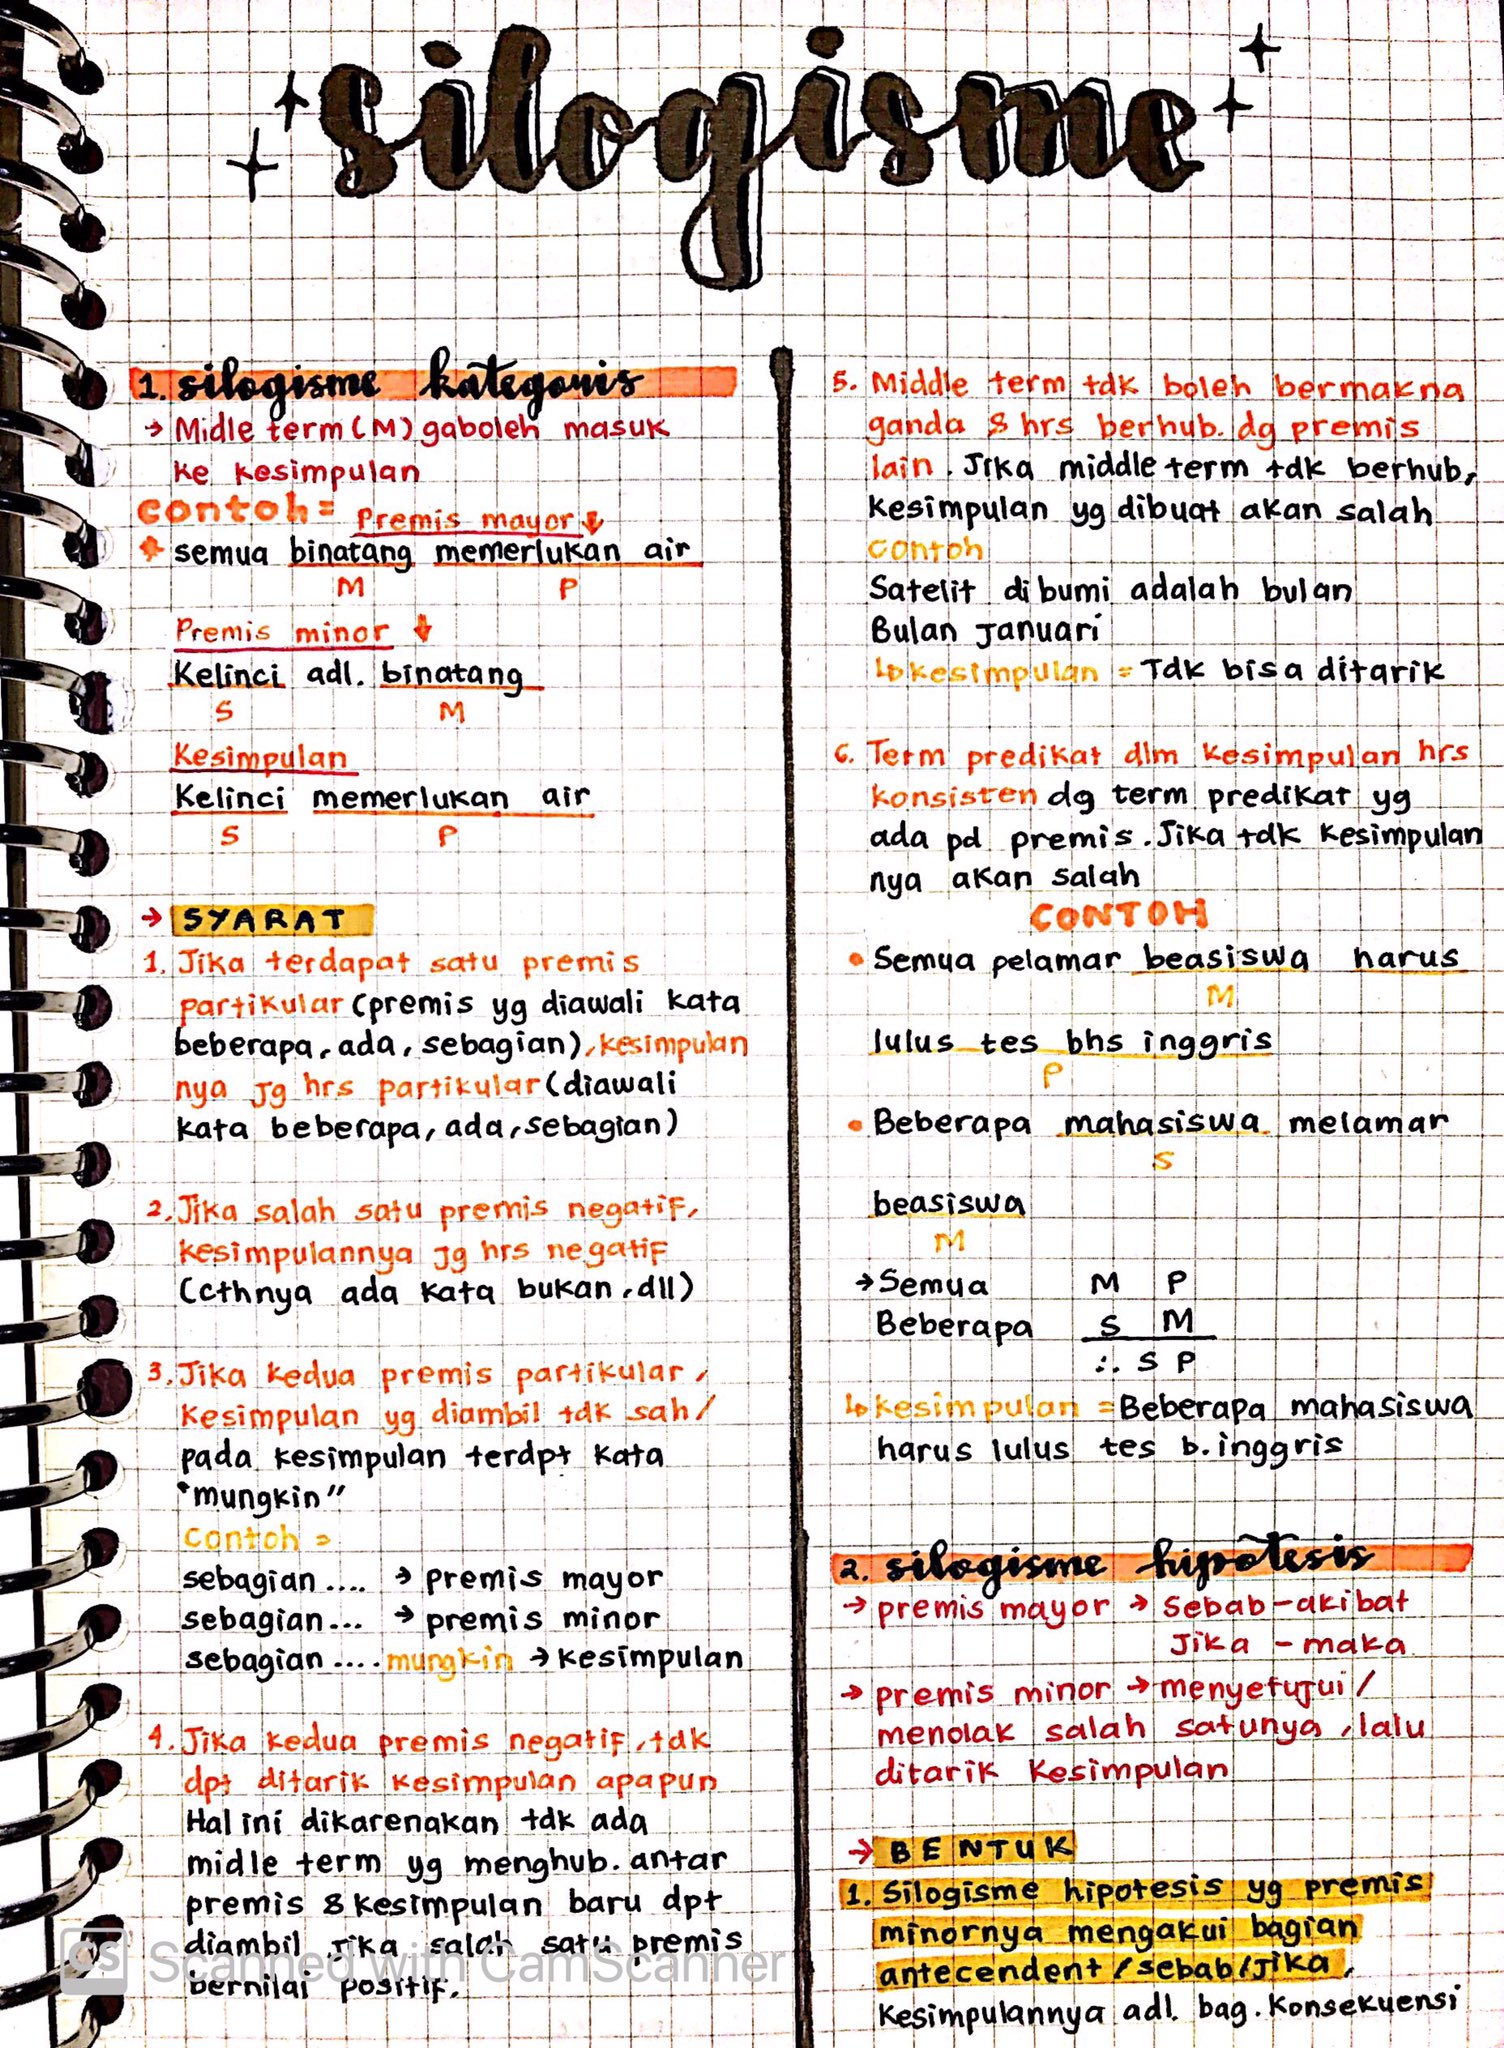 silogisme
1. silogisme kategoris
→ Midle term (M) gaboleh masuk
ke kesimpulan
contoh =
Premis mayor ↓
semua binatang memerlukan air
M P
Premis minor ↓
Kelinci adl. binatang
S M
Kesimpulan
Kelinci memerlukan air
S P
→ SYARAT
1. Jika terdapat satu premis
partikular (premis yg diawali kata
beberapa, ada, sebagian), kesimpulan
nya jg hrs partikular (diawali
kata beberapa, ada, sebagian)
2. Jika salah satu premis negatif,
kesimpulannya jg hrs negatif
(cthnya ada kata bukan, dll)
3. Jika kedua premis partikular,
kesimpulan yg diambil tdk sah/
pada kesimpulan terdpt kata
"mungkin"
Contoh =
sebagian .... → premis mayor
sebagian ... → premis minor
sebagian .... mungkin → kesimpulan
4. Jika kedua premis negatif, tdk
dpt ditarik kesimpulan apapun
Hal ini dikarenakan tdk ada
midle term yg menghub. antar
premis & kesimpulan baru dpt
diambil jika salah satu premis
bernilai positif.
5. Middle term tdk boleh bermakna
ganda & hrs berhub. dg premis
lain. Jika middle term tdk berhub,
kesimpulan yg dibuat akan salah
contoh
Satelit di bumi adalah bulan
Bulan Januari
↳ kesimpulan = Tdk bisa ditarik
6. Term predikat dlm kesimpulan hrs
konsisten dg term predikat yg
ada pd premis. Jika tdk kesimpulan
nya akan salah
CONTOH
• Semua pelamar beasiswa harus
M
lulus tes bhs inggris
P
• Beberapa mahasiswa melamar
S
beasiswa
M
→ Semua M P
Beberapa S M
∴ S P
↳ kesimpulan = Beberapa mahasiswa
harus lulus tes b. inggris
2. silogisme hipotesis
→ premis mayor → Sebab - akibat
Jika - maka
→ premis minor → menyetujui /
menolak salah satunya, lalu
ditarik kesimpulan
→ BENTUK
1. Silogisme hipotesis yg premis
minornya mengakui bagian
antecendent / sebab / jika,
kesimpulannya adl. bag. konsekuensi
CS Scanned with CamScanner